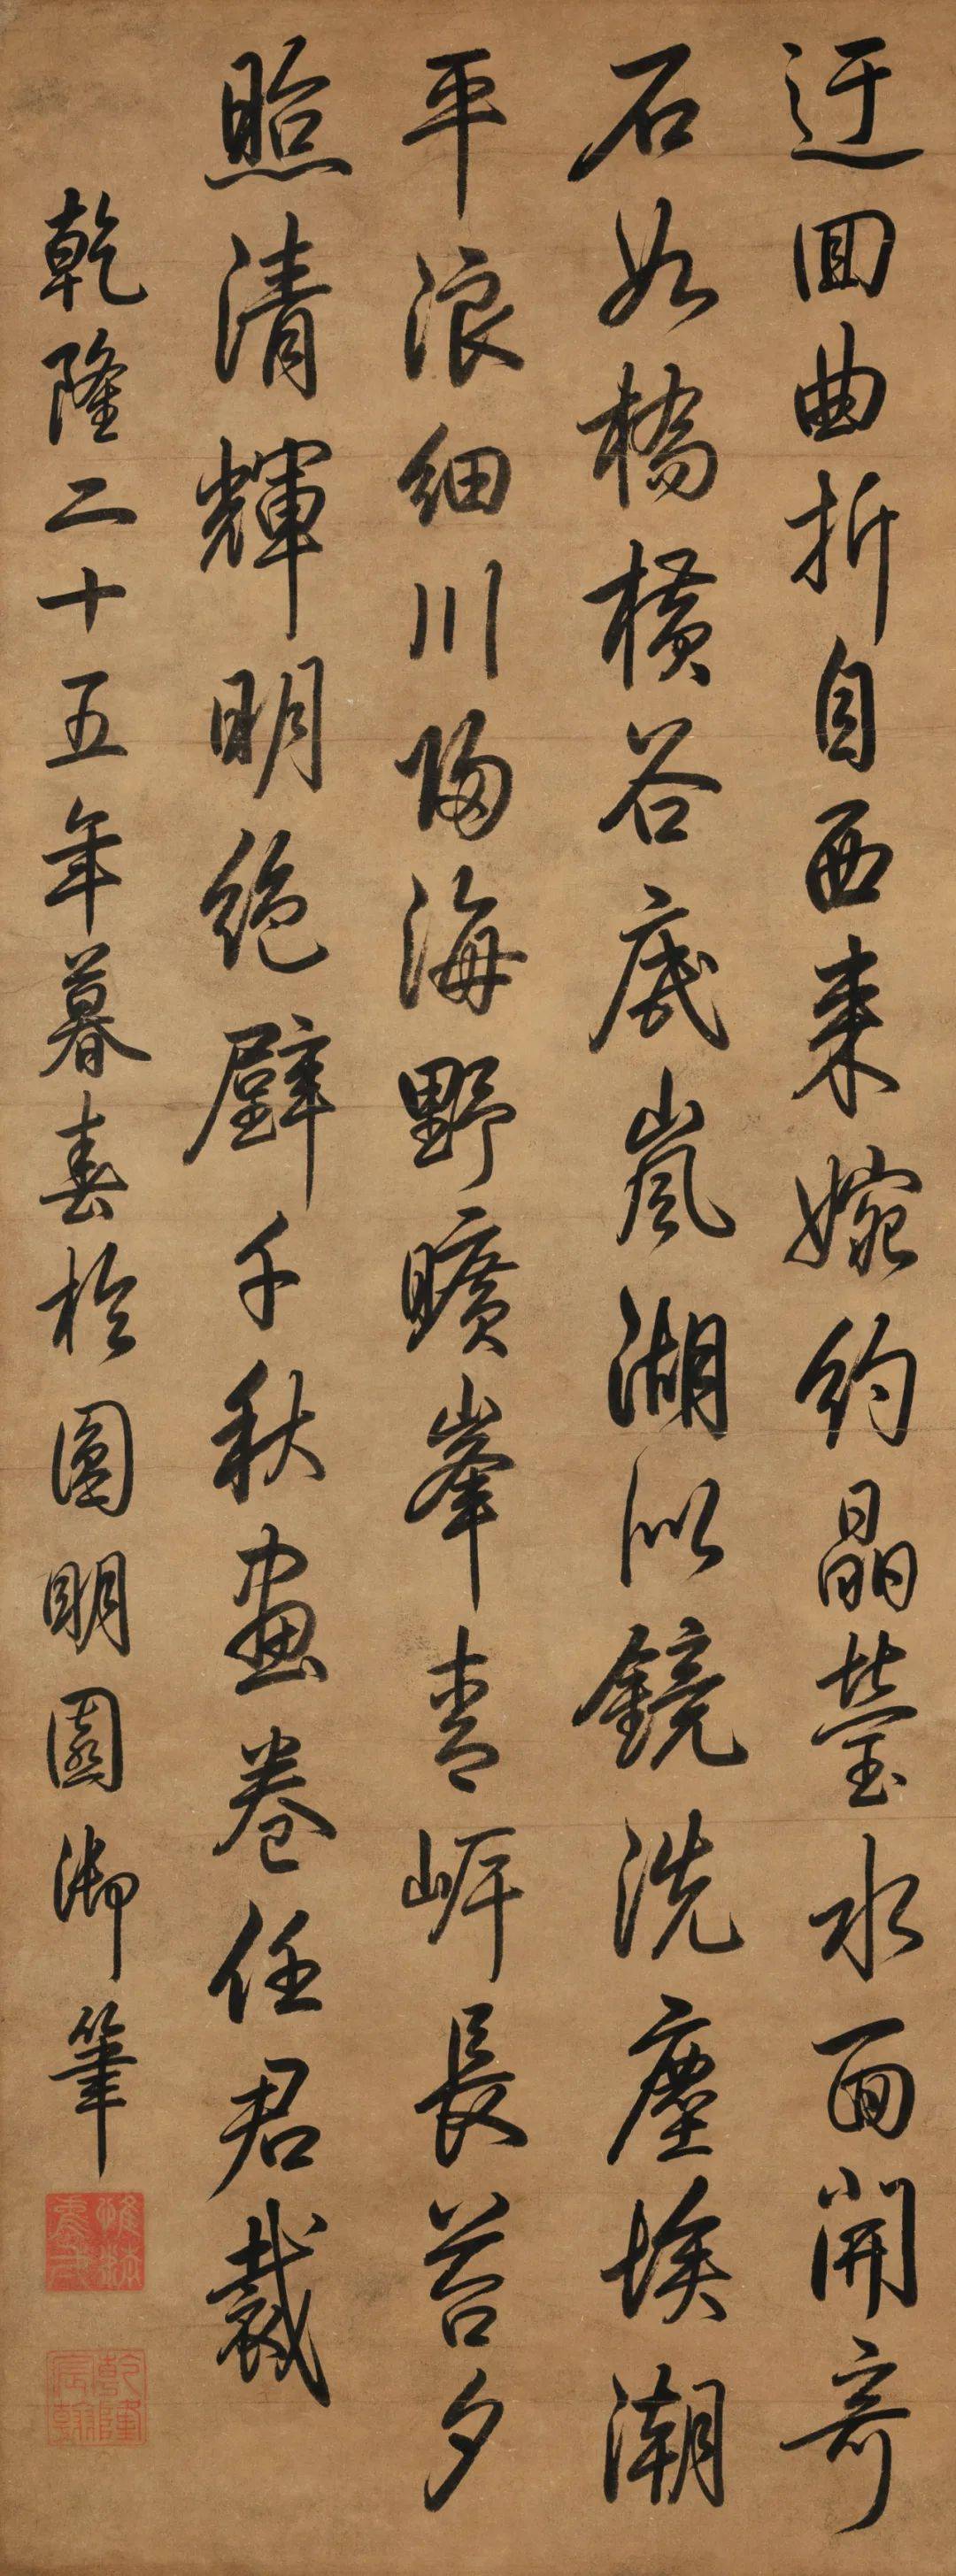 迂回曲折自西来婉約晶瑩水面開奇
石如橋橫谷底嵐湖似鏡洗塵埃潮
平浪細川歸海野曠峯青岸長苔夕
照清輝明絕壁千秋畫卷任君裁
乾隆二十五年暮春於圓明園御筆
惟精惟一
乾隆宸翰